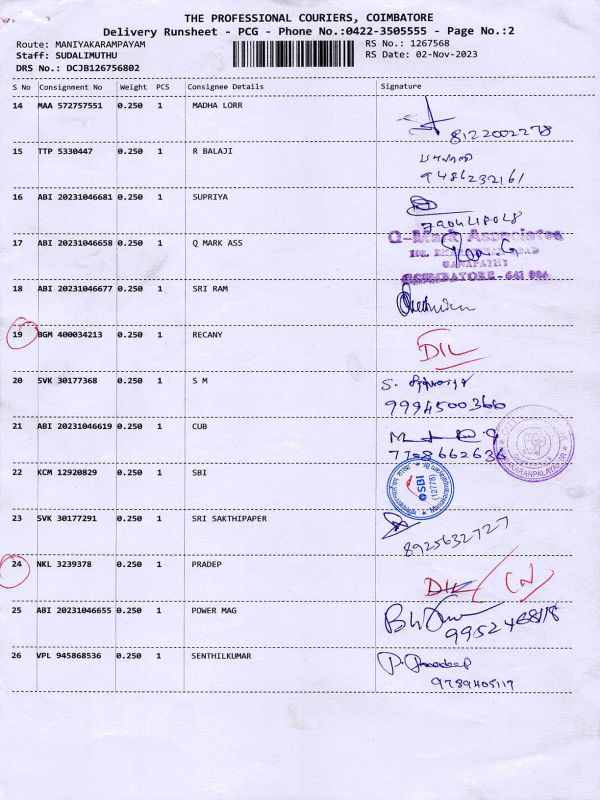 THE PROFESSIONAL COURIERS, COIMBATORE
Delivery Runsheet - PCG - Phone No.:0422-3505555 - Page No.:2
Route: MANIYAKARAMPAYAM RS No.: 1267568
Staff: SUDALIMUTHU RS Date: 02-Nov-2023
DRS No.: DCJB126756802
S No Consignment No Weight PCS Consignee Details Signature
14 MAA 572757551 0.250 1 MADHA LORR
8122002278
15 TTP 5330447 0.250 1 R BALAJI
9486232161
16 ABI 20231046681 0.250 1 SUPRIYA
Q-Mark Associates
17 ABI 20231046658 0.250 1 Q MARK ASS
GANAPATHY
COIMBATORE - 641 006
18 ABI 20231046677 0.250 1 SRI RAM
19 BGM 400034213 0.250 1 RECANY
DIL
20 SVK 30177368 0.250 1 S M
S.
9994500366
21 ABI 20231046619 0.250 1 CUB
7708662636
22 KCM 12920829 0.250 1 SBI
SBI
(12778)
23 SVK 30177291 0.250 1 SRI SAKTHIPAPER
8925632727
24 NKL 3239378 0.250 1 PRADEP
DIL
25 ABI 20231046655 0.250 1 POWER MAG
26 VPL 945868536 0.250 1 SENTHILKUMAR
P. Pradeep
9789405117